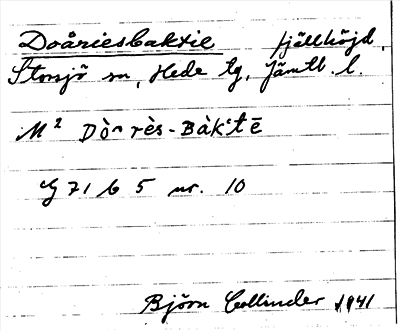 Doåriesbaktie fjällhöjd.
Storsjö sn, Hede tg, Jämtl. l.
M² Dòⁿ rès-Bàkʻtē
G 71 b 5 nr. 10
Björn Collinder 1941